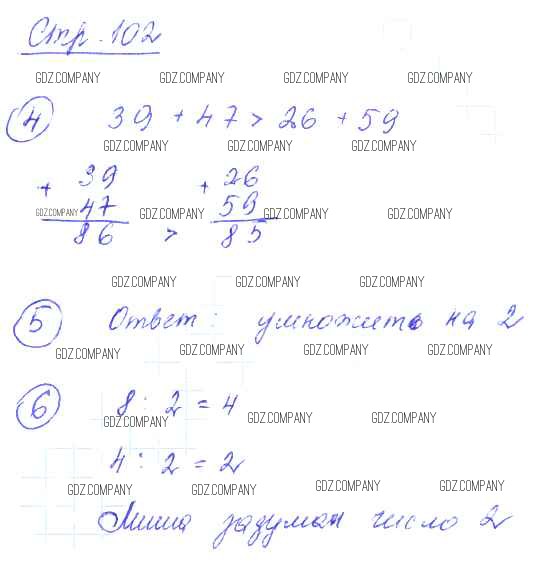 Стр. 102
GDZ.COMPANY GDZ.COMPANY GDZ.COMPANY GDZ.COMPANY
4 39 + 47 > 26 + 59
GDZ.COMPANY GDZ.COMPANY GDZ.COMPANY
+ 39 + 26
47 59
GDZ.COMPANY GDZ.COMPANY GDZ.COMPANY GDZ.COMPANY
86 > 85
GDZ.COMPANY GDZ.COMPANY GDZ.COMPANY
5 Ответ: умножить на 2
GDZ.COMPANY GDZ.COMPANY GDZ.COMPANY GDZ.COMPANY
6 8 : 2 = 4
GDZ.COMPANY GDZ.COMPANY GDZ.COMPANY
4 : 2 = 2
GDZ.COMPANY GDZ.COMPANY GDZ.COMPANY GDZ.COMPANY
Миша задумал число 2